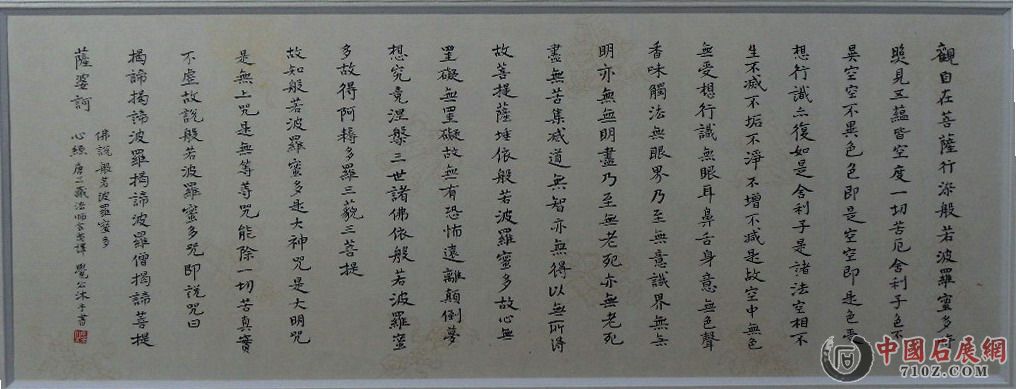 觀自在菩薩行深般若波羅蜜多時
照見五蘊皆空度一切苦厄舍利子色不
異空空不異色色即是空空即是色受
想行識亦復如是舍利子是諸法空相不
生不滅不垢不淨不增不減是故空中無色
無受想行識無眼耳鼻舌身意無色聲
香味觸法無眼界乃至無意識界無無
明亦無無明盡乃至無老死亦無老死
盡無苦集滅道無智亦無得以無所得
故菩提薩埵依般若波羅蜜多故心無
罣礙無罣礙故無有恐怖遠離顛倒夢
想究竟涅槃三世諸佛依般若波羅蜜
多故得阿耨多羅三藐三菩提
故知般若波羅蜜多是大神咒是大明咒
是無上咒是無等等咒能除一切苦真實
不虛故說般若波羅蜜多咒即說咒曰
揭諦揭諦波羅揭諦波羅僧揭諦菩提
薩婆訶
佛說般若波羅蜜多
心經 唐三藏法師玄奘譯 覺公沐手書
中國石展網
710Z.COM